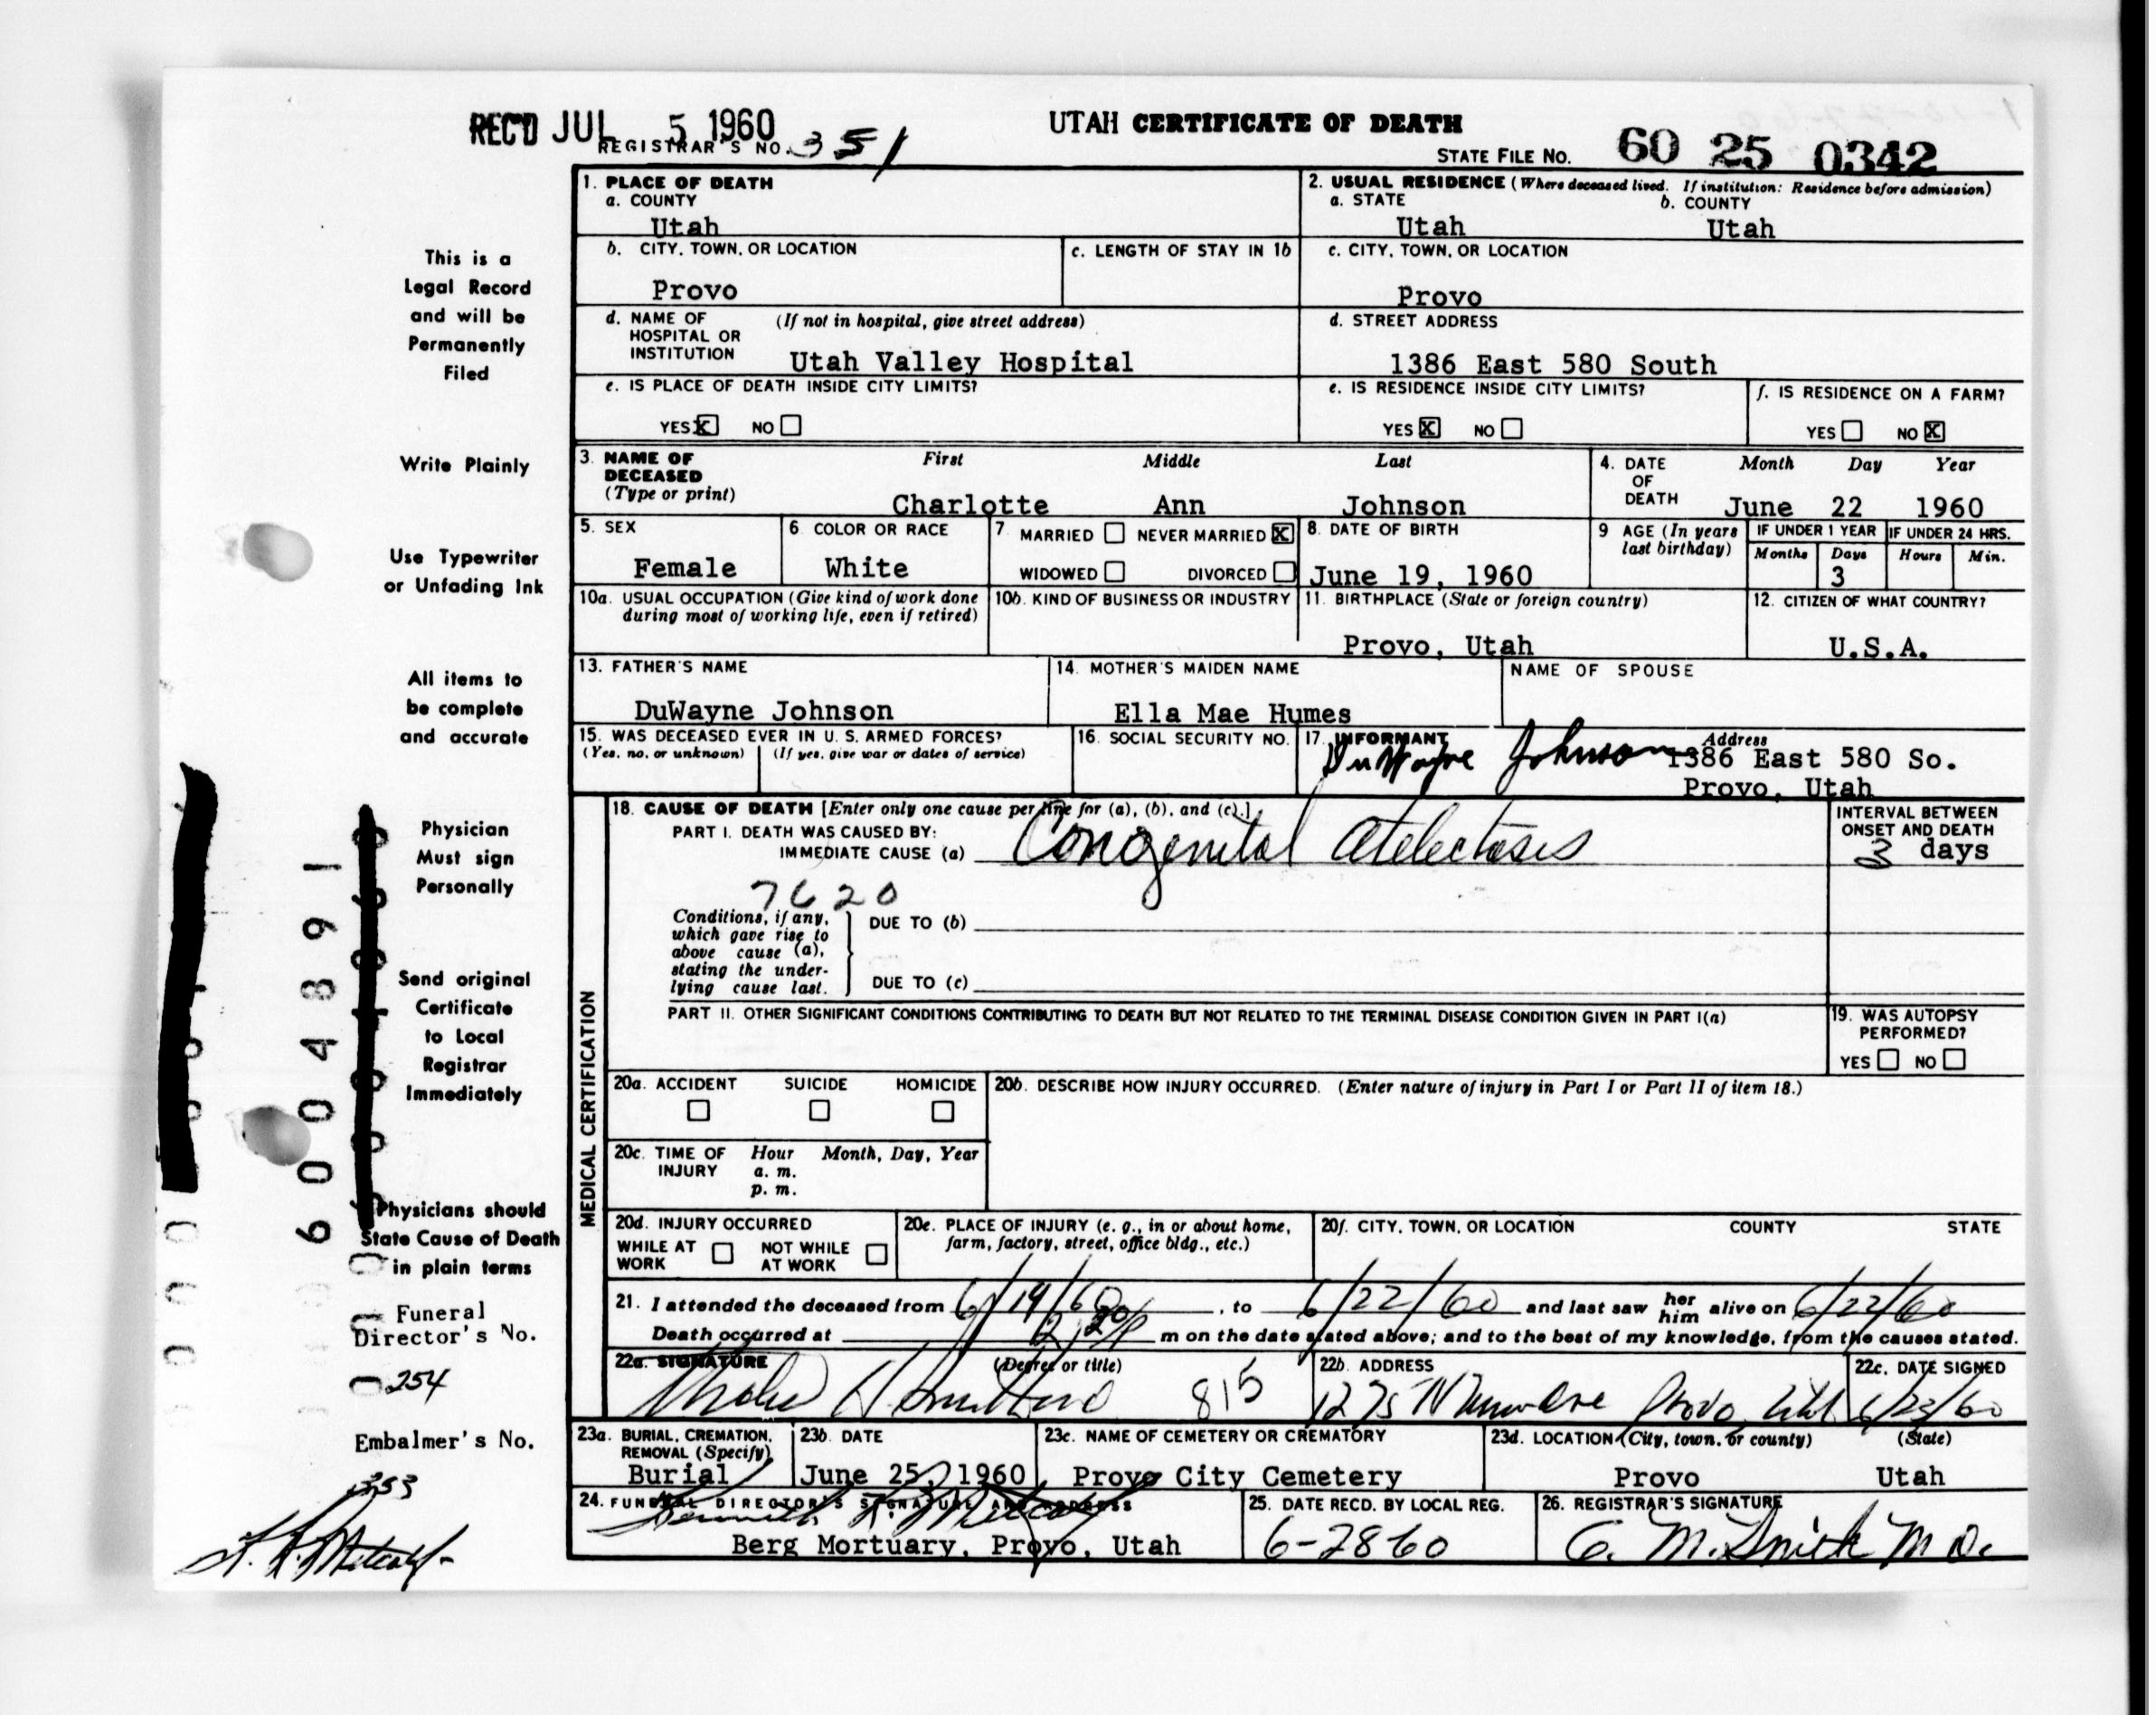 REC'D JUL 5 1960
REGISTRAR'S NO. 351
UTAH CERTIFICATE OF DEATH
STATE FILE NO. 60 25 0342
This is a
Legal Record
and will be
Permanently
Filed
Write Plainly
Use Typewriter
or Unfading Ink
All items to
be complete
and accurate
Physician
Must sign
Personally
Send original
Certificate
to Local
Registrar
Immediately
Physicians should
State Cause of Death
in plain terms
Funeral
Director's No.
254
Embalmer's No.
353
6004891
1. PLACE OF DEATH
a. COUNTY
Utah
2. USUAL RESIDENCE (Where deceased lived. If institution: Residence before admission)
a. STATE b. COUNTY
Utah Utah
b. CITY, TOWN, OR LOCATION
Provo
c. LENGTH OF STAY IN 1b
c. CITY, TOWN, OR LOCATION
Provo
d. NAME OF (If not in hospital, give street address)
HOSPITAL OR
INSTITUTION Utah Valley Hospital
d. STREET ADDRESS
1386 East 580 South
e. IS PLACE OF DEATH INSIDE CITY LIMITS?
YES X NO
e. IS RESIDENCE INSIDE CITY LIMITS?
YES X NO
f. IS RESIDENCE ON A FARM?
YES NO X
3. NAME OF DECEASED (Type or print)
First Middle Last
Charlotte Ann Johnson
4. DATE OF DEATH
Month Day Year
June 22 1960
5. SEX
Female
6. COLOR OR RACE
White
7. MARRIED NEVER MARRIED X
WIDOWED DIVORCED
8. DATE OF BIRTH
June 19, 1960
9 AGE (In years last birthday)
IF UNDER 1 YEAR IF UNDER 24 HRS.
Months Days Hours Min.
3
10a. USUAL OCCUPATION (Give kind of work done
during most of working life, even if retired)
10b. KIND OF BUSINESS OR INDUSTRY
11. BIRTHPLACE (State or foreign country)
Provo, Utah
12. CITIZEN OF WHAT COUNTRY?
U.S.A.
13. FATHER'S NAME
DuWayne Johnson
14. MOTHER'S MAIDEN NAME
Ella Mae Humes
NAME OF SPOUSE
15. WAS DECEASED EVER IN U. S. ARMED FORCES?
(Yes, no, or unknown) (If yes, give war or dates of service)
16. SOCIAL SECURITY NO.
17. INFORMANT Address
DuWayne Johnson 1386 East 580 So.
Provo, Utah
MEDICAL CERTIFICATION
18. CAUSE OF DEATH [Enter only one cause per line for (a), (b), and (c).]
PART I. DEATH WAS CAUSED BY:
IMMEDIATE CAUSE (a) Congenital Atelectasis
INTERVAL BETWEEN
ONSET AND DEATH
3 days
7620
Conditions, if any,
which gave rise to
above cause (a),
stating the under-
lying cause last.
DUE TO (b)
DUE TO (c)
PART II. OTHER SIGNIFICANT CONDITIONS CONTRIBUTING TO DEATH BUT NOT RELATED TO THE TERMINAL DISEASE CONDITION GIVEN IN PART I(a)
19. WAS AUTOPSY
PERFORMED?
YES NO
20a. ACCIDENT SUICIDE HOMICIDE
20b. DESCRIBE HOW INJURY OCCURRED. (Enter nature of injury in Part I or Part II of item 18.)
20c. TIME OF INJURY
Hour Month, Day, Year
a. m.
p. m.
20d. INJURY OCCURRED
WHILE AT WORK NOT WHILE AT WORK
20e. PLACE OF INJURY (e. g., in or about home,
farm, factory, street, office bldg., etc.)
20f. CITY, TOWN, OR LOCATION COUNTY STATE
21. I attended the deceased from 6/19/60, to 6/22/60 and last saw her him alive on 6/22/60
Death occurred at 2:20 P m on the date stated above; and to the best of my knowledge, from the causes stated.
22a. SIGNATURE (Degree or title)
815
22b. ADDRESS
1275 N Provo, Utah
22c. DATE SIGNED
6/23/60
23a. BURIAL, CREMATION,
REMOVAL (Specify)
Burial
23b. DATE
June 25, 1960
23c. NAME OF CEMETERY OR CREMATORY
Provo City Cemetery
23d. LOCATION (City, town, or county) (State)
Provo Utah
24. FUNERAL DIRECTOR'S SIGNATURE AND ADDRESS
Berg Mortuary, Provo, Utah
25. DATE RECD. BY LOCAL REG.
6-28 60
26. REGISTRAR'S SIGNATURE
G. M. Smith M D.